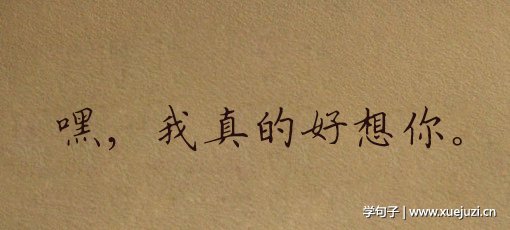 嘿，我真的好想你。
学句子 | www.xuejuzi.cn